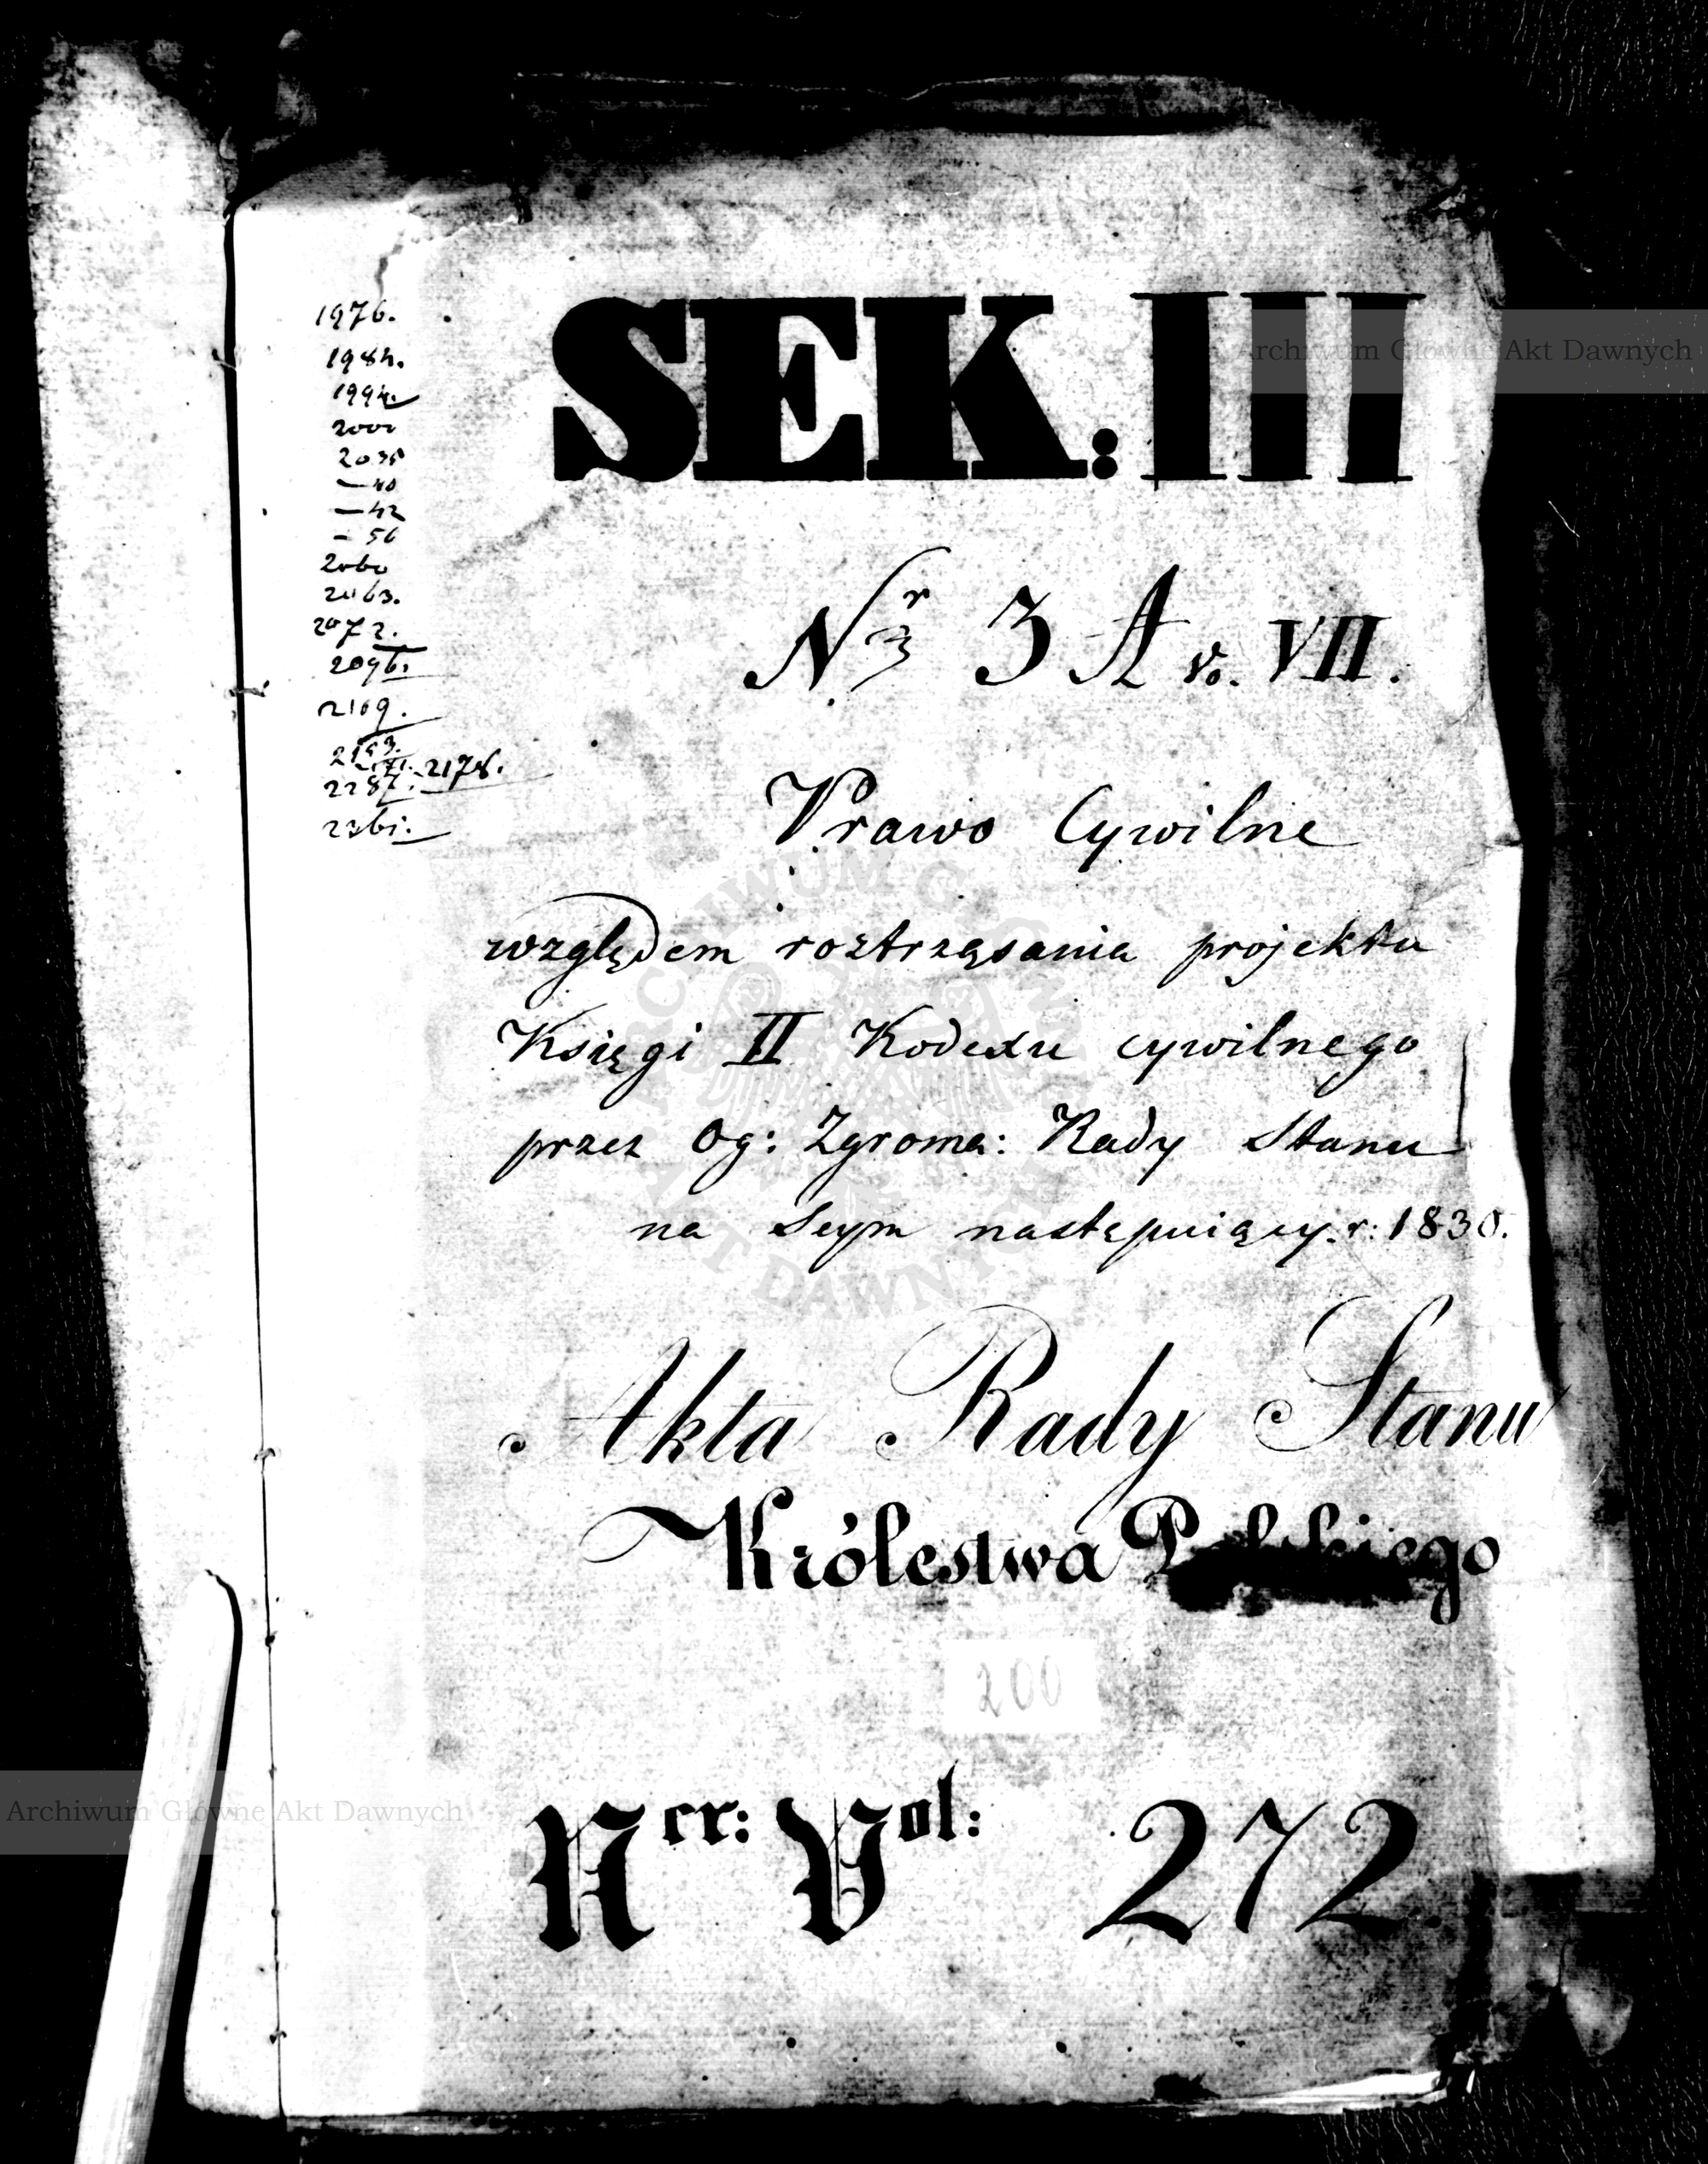 1976.
1984.
1994.
2000
2035
— 40
— 42
— 56
2060
2063.
2072.
2096.
2109.
2178.
2287.
SEK: III
Nr 3 A vo. VII.
Prawo Cywilne
względem roztrząsania projektu
Księgi II Kodexu cywilnego
przez Og: Zgroma: Rady Stanu
na Seym następuiący. r: 1830.
Akta Rady Stanu
Królestwa Polskiego
200
Ner: Vol: 272
Archiwum Główne Akt Dawnych
ARCHIWUM GŁÓWNE AKT DAWNYCH
Archiwum Główne Akt Dawnych